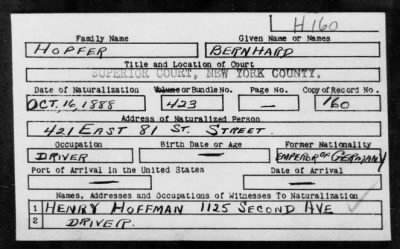 H160
Family Name Given Name or Names
HOPFER BERNHARD
Title and Location of Court
SUPERIOR COURT, NEW YORK COUNTY.
Date of Naturalization Volume or Bundle No. Page No. Copy of Record No.
OCT. 16, 1888 423 — 160
Address of Naturalized Person
421 EAST 81 ST. STREET.
Occupation Birth Date or Age Former Nationality
DRIVER — EMPEROR OF GERMANY
Port of Arrival in the United States Date of Arrival
— —
Names, Addresses and Occupations of Witnesses To Naturalization
1 HENRY HOFFMAN 1125 SECOND AVE
2 DRIVER.